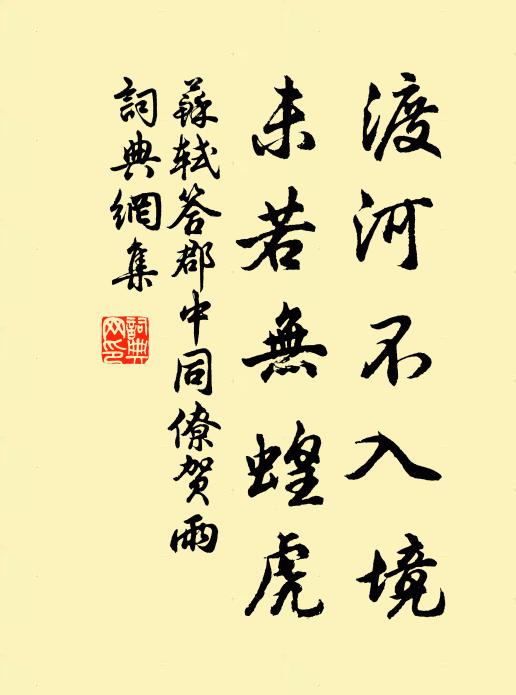 渡河不入境
未若無蝗虎
蘇軾答郡中同僚賀雨
詞典網集
詞典網印